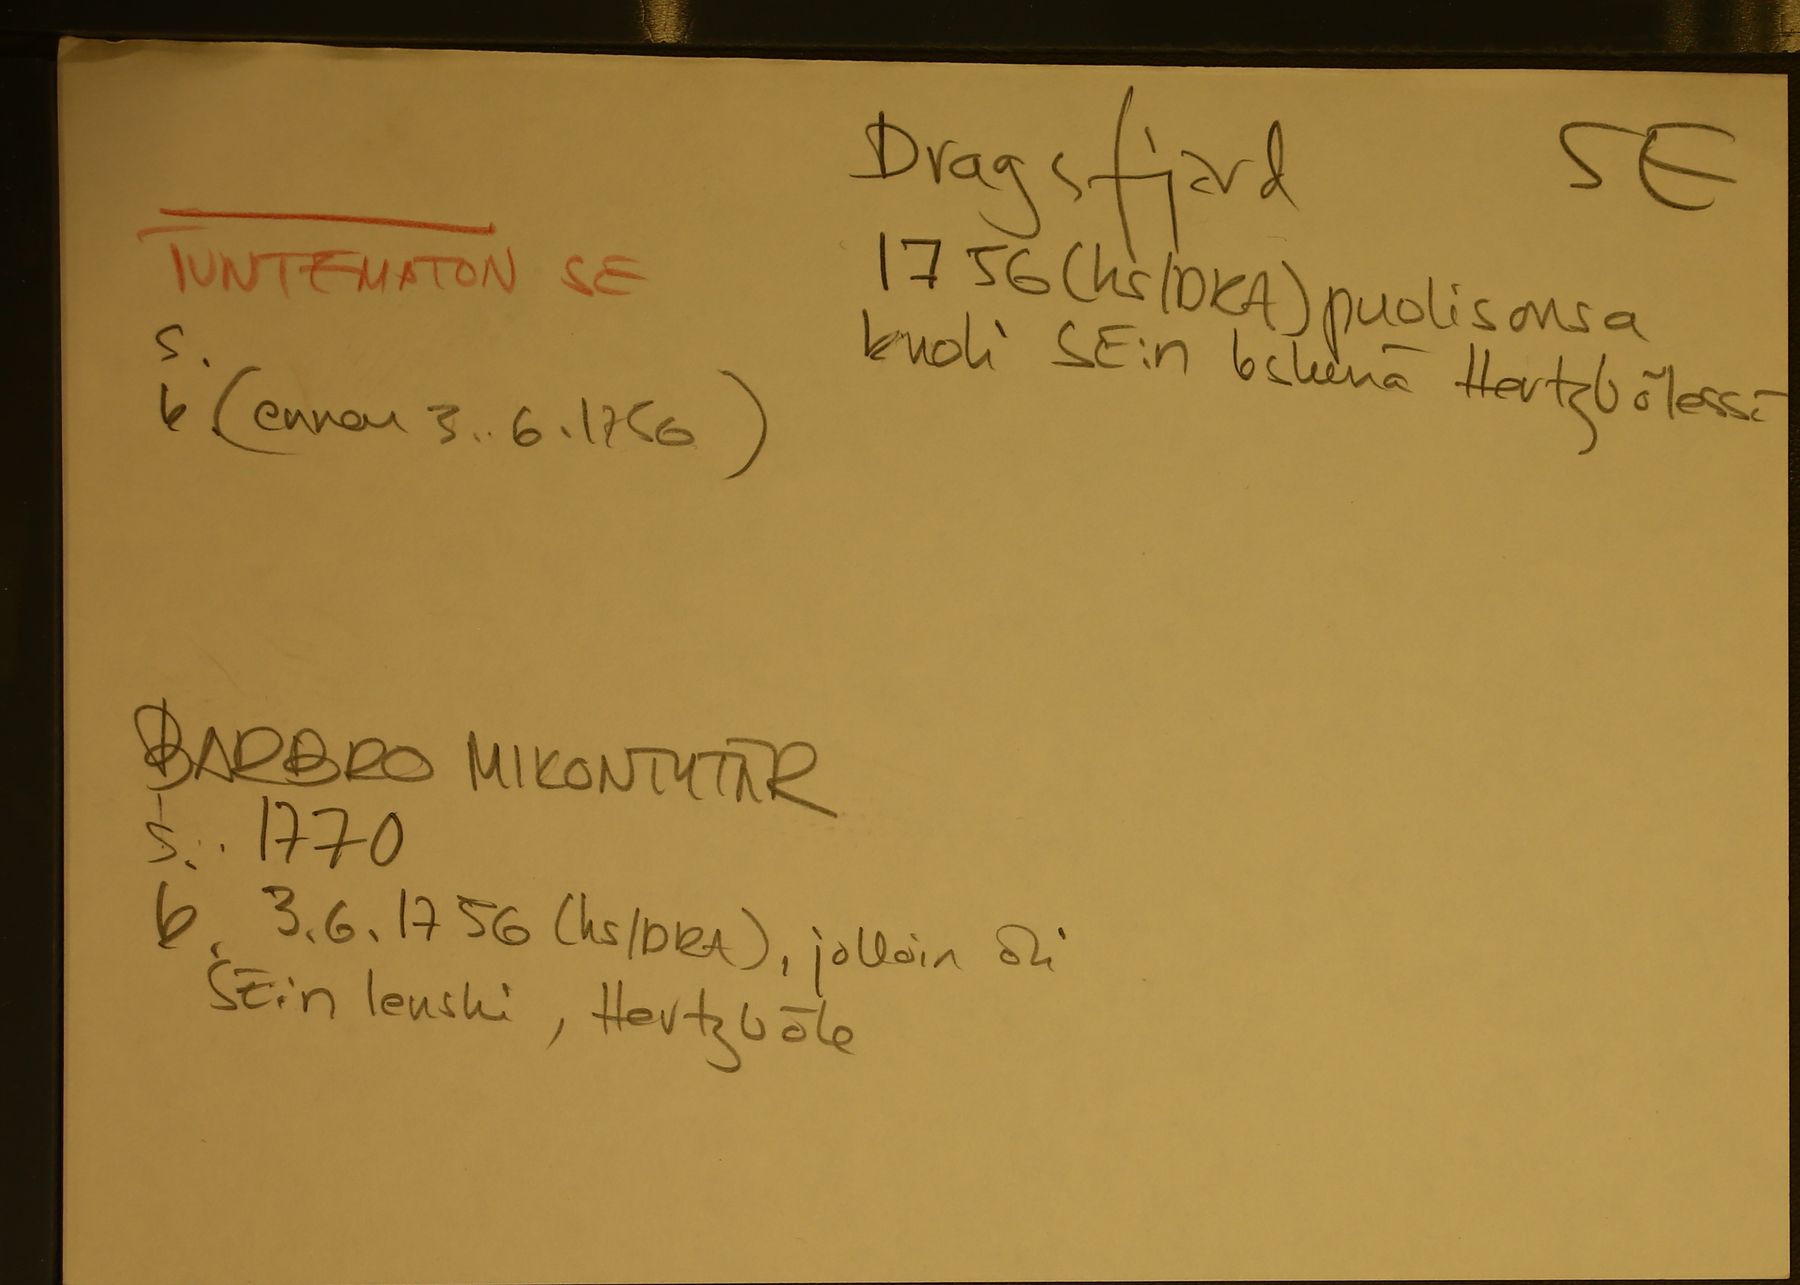 Dragsfjärd SE
TUNTEMATON SE
1756 (hs/DKA) puolisonsa
kuoli SE:n leskenä Hertzbölessä
s.
k (ennen 3..6.1756)
BARBRO MIKONTYTÄR
s.. 1770
k. 3.6.1756 (hs/DKA), jolloin oli
SE:n leski, Hertzböle